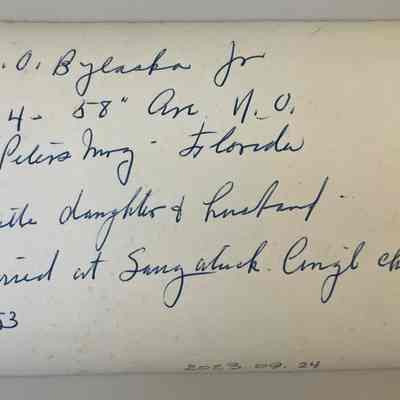 .O. Bylaska Jr
4- 58" Ave N.O.
Petersburg - Florida
daughter & husband -
at Saugatuck Cong'l Ch
53
2023.09.24